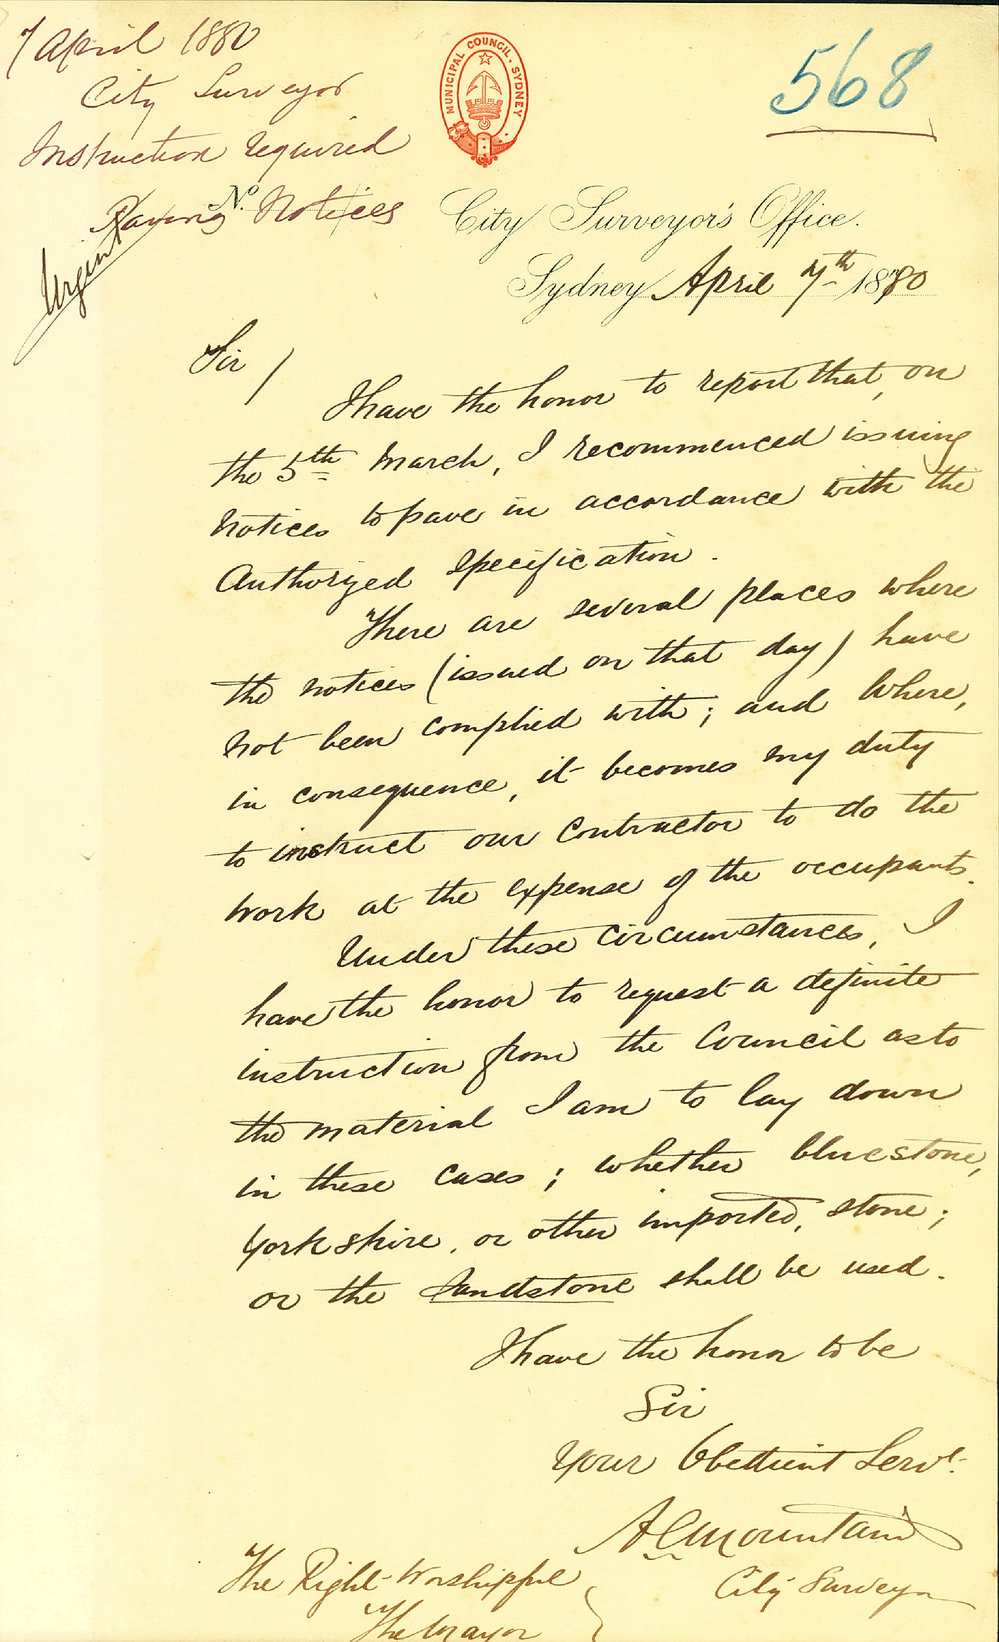 7 April 1880
City Surveyor
Instruction required
Paving Notices
Urgent
MUNICIPAL COUNCIL. SYDNEY
568
No.
City Surveyor's Office.
Sydney April 7th 1880
Sir /
I have the honor to report that, on
the 5th March, I recommenced issuing
notices to pave in accordance with the
Authorized Specification.
There are several places where
the notices (issued on that day) have
not been complied with; and where,
in consequence, it becomes my duty
to instruct our Contractor to do the
work at the expense of the occupants.
Under these circumstances, I
have the honor to request a definite
instruction from the Council as to
the material I am to lay down
in these cases; whether bluestone,
Yorkshire, or other imported, stone;
or the Sandstone shall be used.
I have the honor to be
Sir
Your Obedient Servt.
A C Mountain
City Surveyor
The Right Worshipful
The Mayor